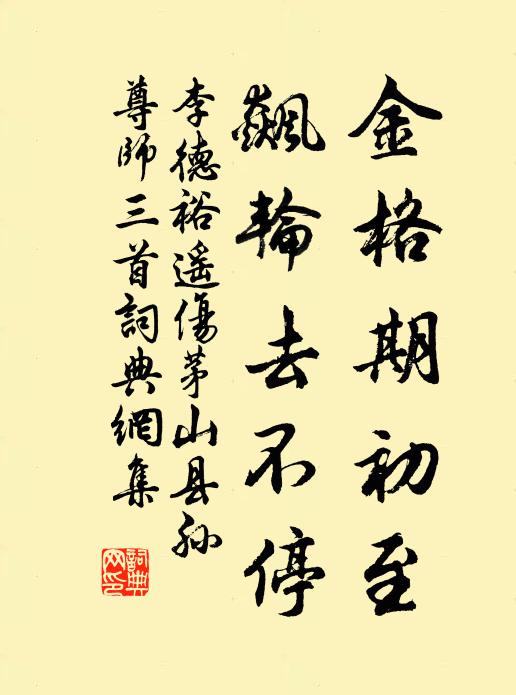 金格期初至
飆輪去不停
李德裕遥傷茅山县孙
尊師三首詞典網集
詞典网印